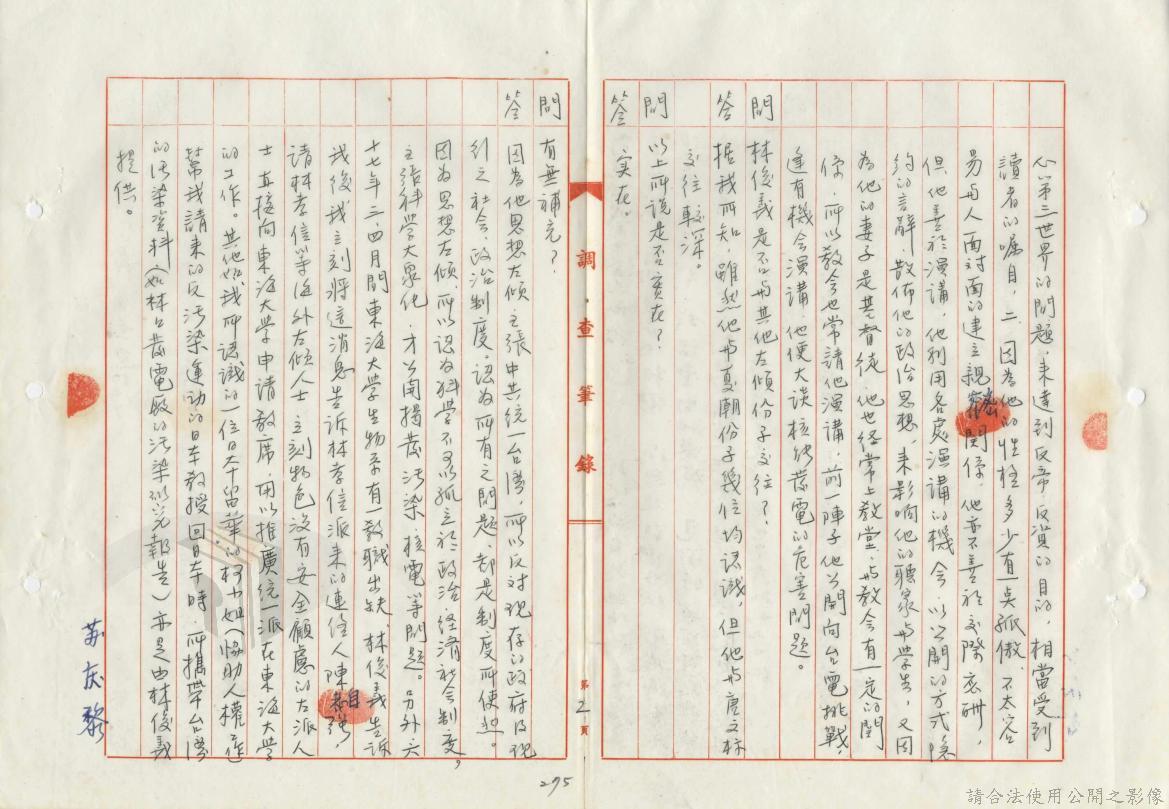 心第三世界的問題,来達到反帝、反資的目的,相當受到
讀者的嘱目,二、因為他的性格多少有一点孤傲,不太容
易与人面对面的建立親密関係,他亦不善於交際
但他善於演講,他利用各處演講的機会,以公開的方式
約的言辭,散佈他的政治思想,来影响他的聽衆与學生,又因
為他的妻子是基督徒,他也経常上教堂,与教会有一定的関
係,所以教会也常請他演講,前一陣子他公開向台電挑戰,
逢有機会演講,他便大談核能發電的危害問題。
問 林俊義是否与其他左傾份子交往?
答 据我所知,雖然他与夏潮份子幾位均認識,但他与唐文标
交往較深。
問 以上所説是否實在?
答 实在。
調查筆錄
第2頁
問 有無補充?
答 因為他思想左傾,主張中共統一台湾,所以反对現存的政府及現
行之社会、政治制度,認為所有之問題,都是制度所使然。
因為思想左傾,所以認為科学不可以孤立於政治、经濟社会制度,
主張科学大衆化,才公開揭發污染、核電等問題。另外六
十七年三、四月間東海大学生物系有一教職出缺,林俊義告訴
我後,我立刻將這消息告訴林孝信派来的連絡人陳
請林孝信等海外左傾人士立刻物色没有安全顧慮的左派人
士直接向東海大学申請教席,用以推廣統一派在東海大学
的工作。其他如我所認識的一位日本留華的村小姐(協助人權工作
幫我請来的反污染運动的日本教授回日本時,所攜帶台湾
的污染資料(如林口發電廠的污染研究報告)亦是由林俊義
提供。
苏庆黎
275
請合法使用公開之影像